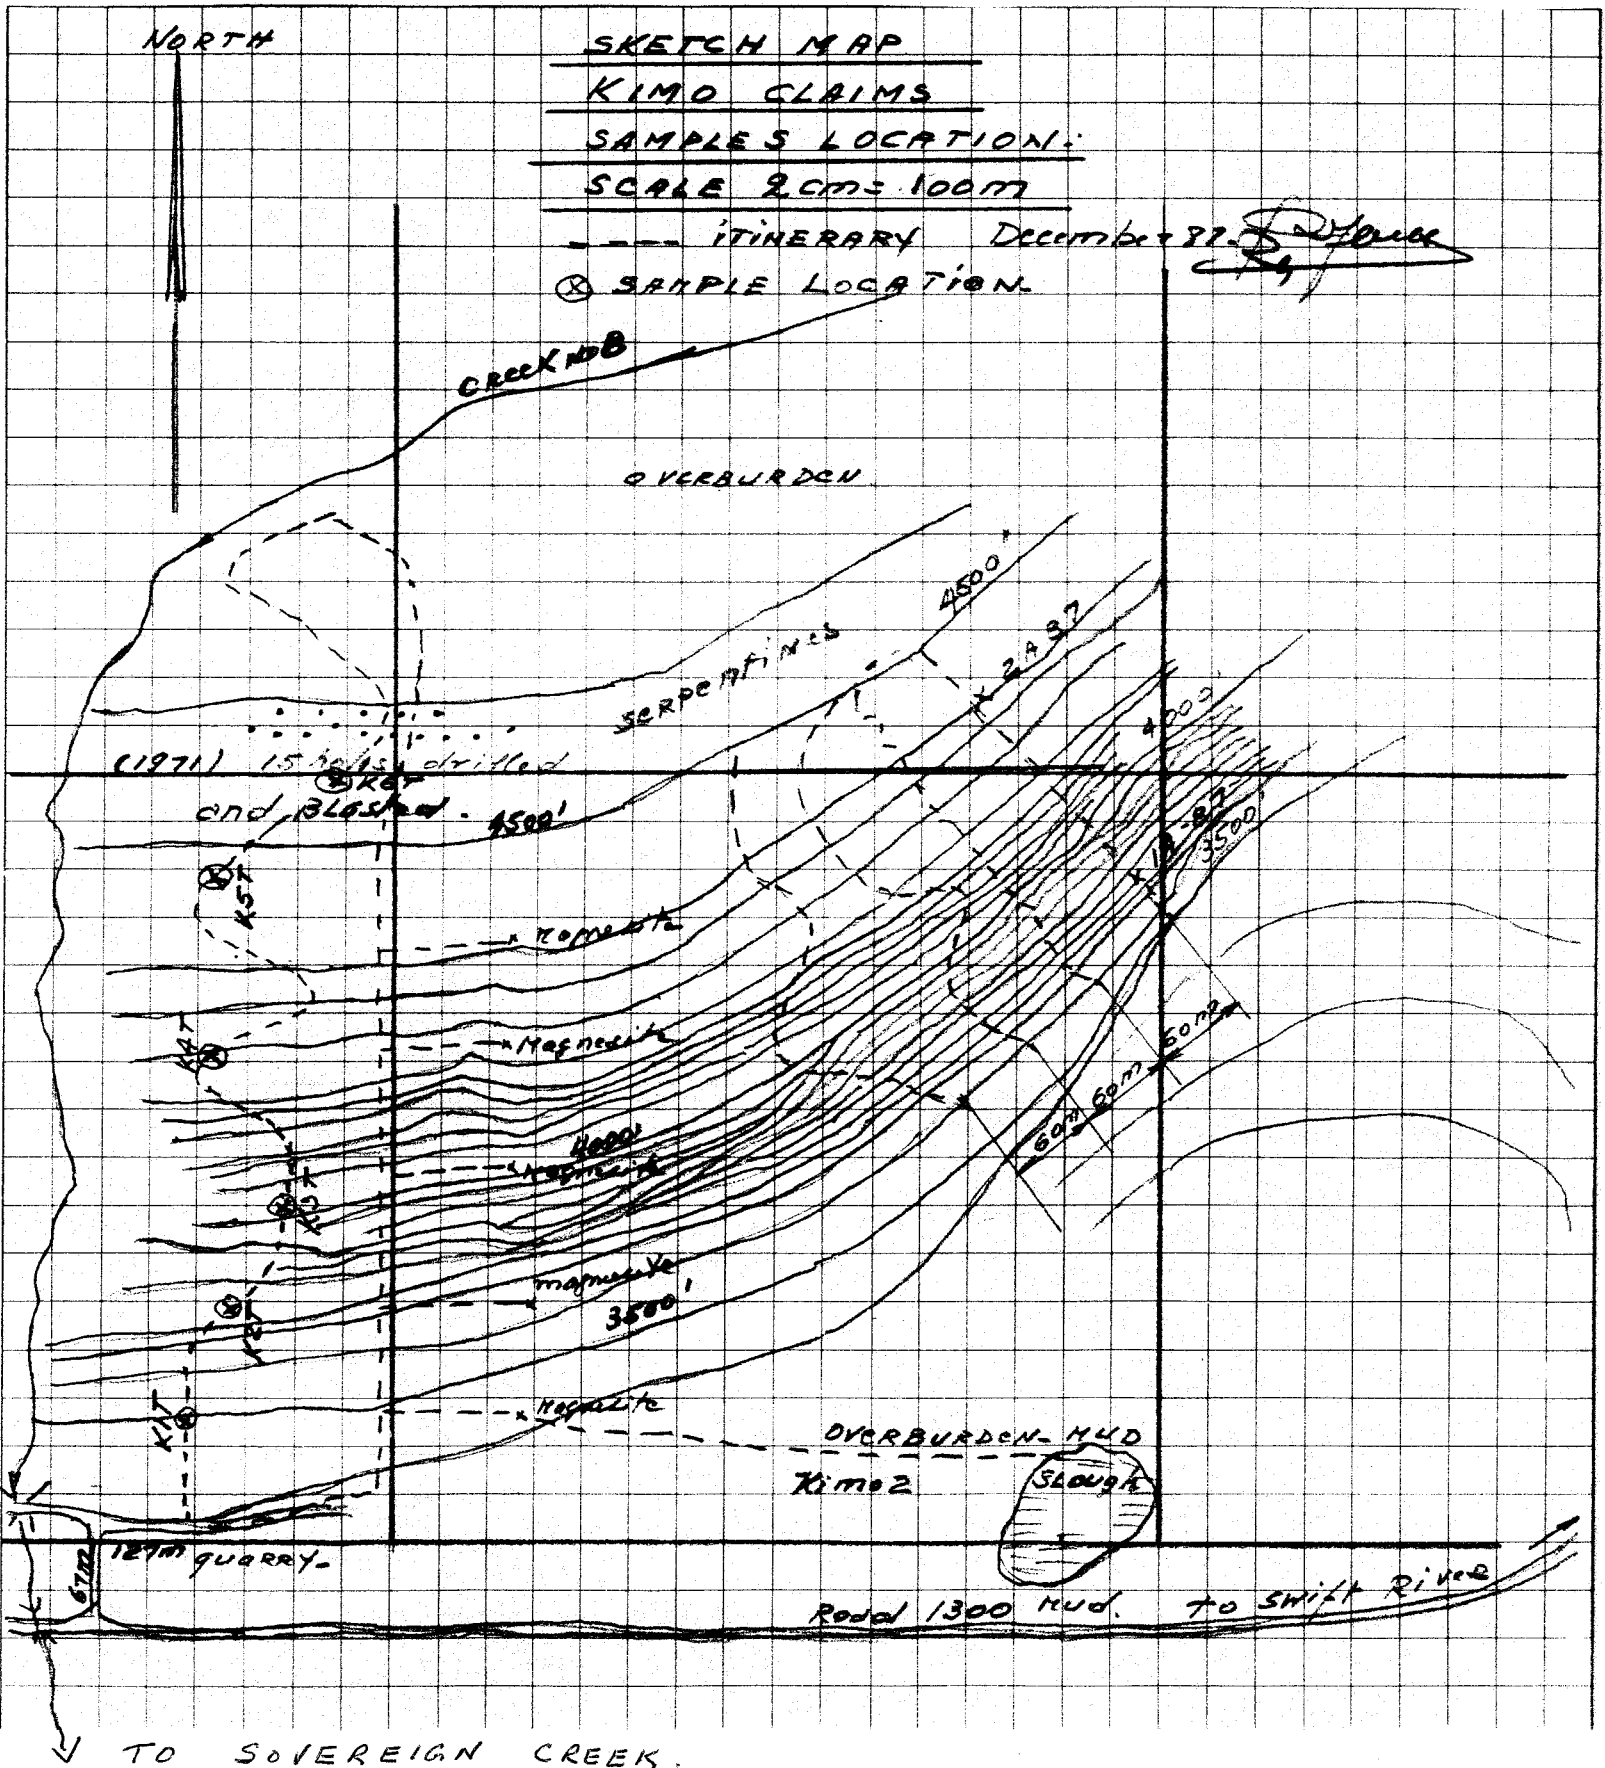 NORTH
SKETCH MAP
KIMO CLAIMS
SAMPLES LOCATION.
SCALE 2cm= 100m
---- ITINERARY December 87.
⊗ SAMPLE LOCATION.
CREEK NO B
OVERBURDEN
4500'
2 A 87
SERPENTINES
4000'
(1971) 15 holes drilled
K6T
and BLasted.
4500'
1A-87
3500'
K5T
Magnesite
K4T
Magnesite
60m
60m
60m
4000'
Magnesite
K3T
magnesite
3500'
K2T
Magnesite
K1T
OVERBURDEN- MUD
Kimo 2
SLough
127m quARRY-
67m
Road 1300 Mud. To Swift River
TO SOVEREIGN CREEK.